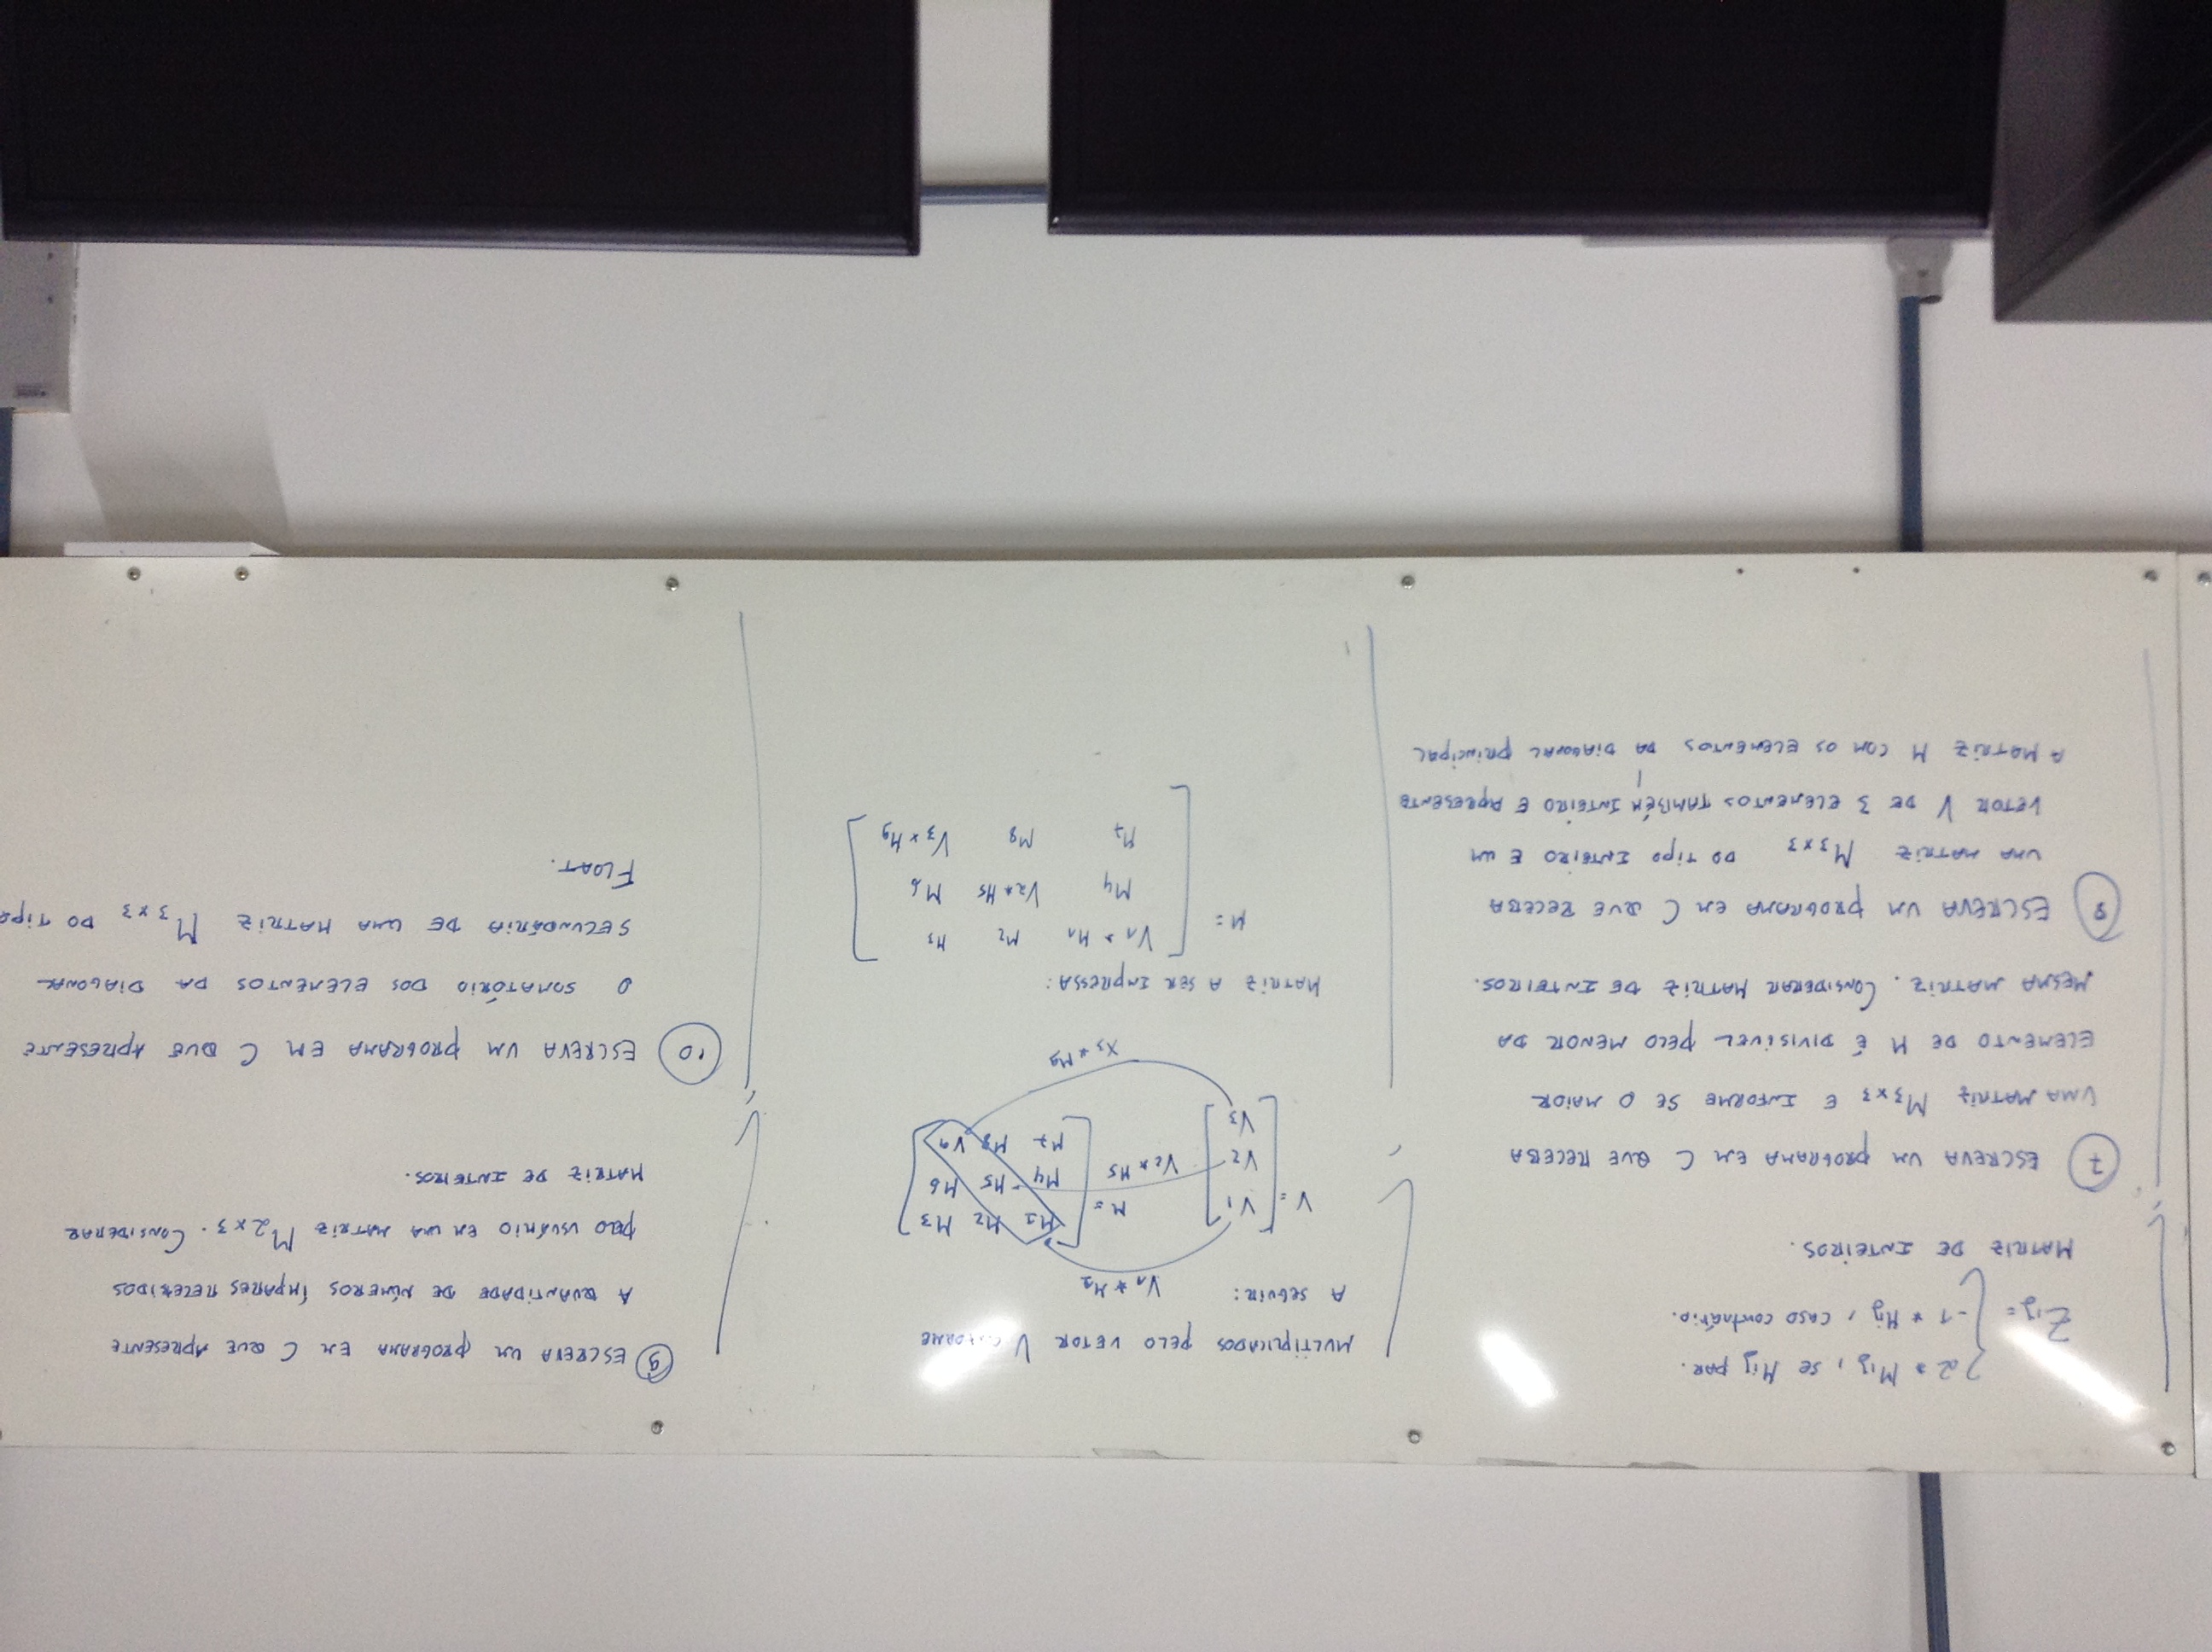 Zij = { 2 * Mij, se Mij par.
-1 * Mij, caso contrário.
MATRIZ DE INTEIROS.
7 ESCREVA UM PROGRAMA EM C QUE RECEBA
UMA MATRIZ M3x3 E INFORME SE O MAIOR
ELEMENTO DE M É DIVISIVEL PELO MENOR DA
MESMA MATRIZ. CONSIDERAR MATRIZ DE INTEIROS.
8 ESCREVA UM PROGRAMA EM C QUE RECEBA
UMA MATRIZ M3x3 DO TIPO INTEIRO E UM
VETOR V DE 3 ELEMENTOS TAMBÉM INTEIRO E APRESENTE
A MATRIZ M COM OS ELEMENTOS DA DIAGONAL PRINCIPAL
MULTIPLICADOS PELO VETOR V CONFORME
A SEGUIR:
V1 * M1
V = [ V1
V2
V3 ]
V2 * M5
M = [ M1 M2 M3
M4 M5 M6
M7 M8 V9 ]
X3 * M9
MATRIZ A SER IMPRESSA:
M = [ V1 * M1 M2 M3
M4 V2 * M5 M6
M7 M8 V3 * M9 ]
9 ESCREVA UM PROGRAMA EM C QUE APRESENTE
A QUANTIDADE DE NÚMEROS ÍMPARES RECEBIDOS
PELO USUÁRIO EM UMA MATRIZ M2x3. CONSIDERAR
MATRIZ DE INTEIROS.
10 ESCREVA UM PROGRAMA EM C QUE APRESENTE
O SOMATÓRIO DOS ELEMENTOS DA DIAGONAL
SECUNDÁRIA DE UMA MATRIZ M3x3 DO TIPO
FLOAT.